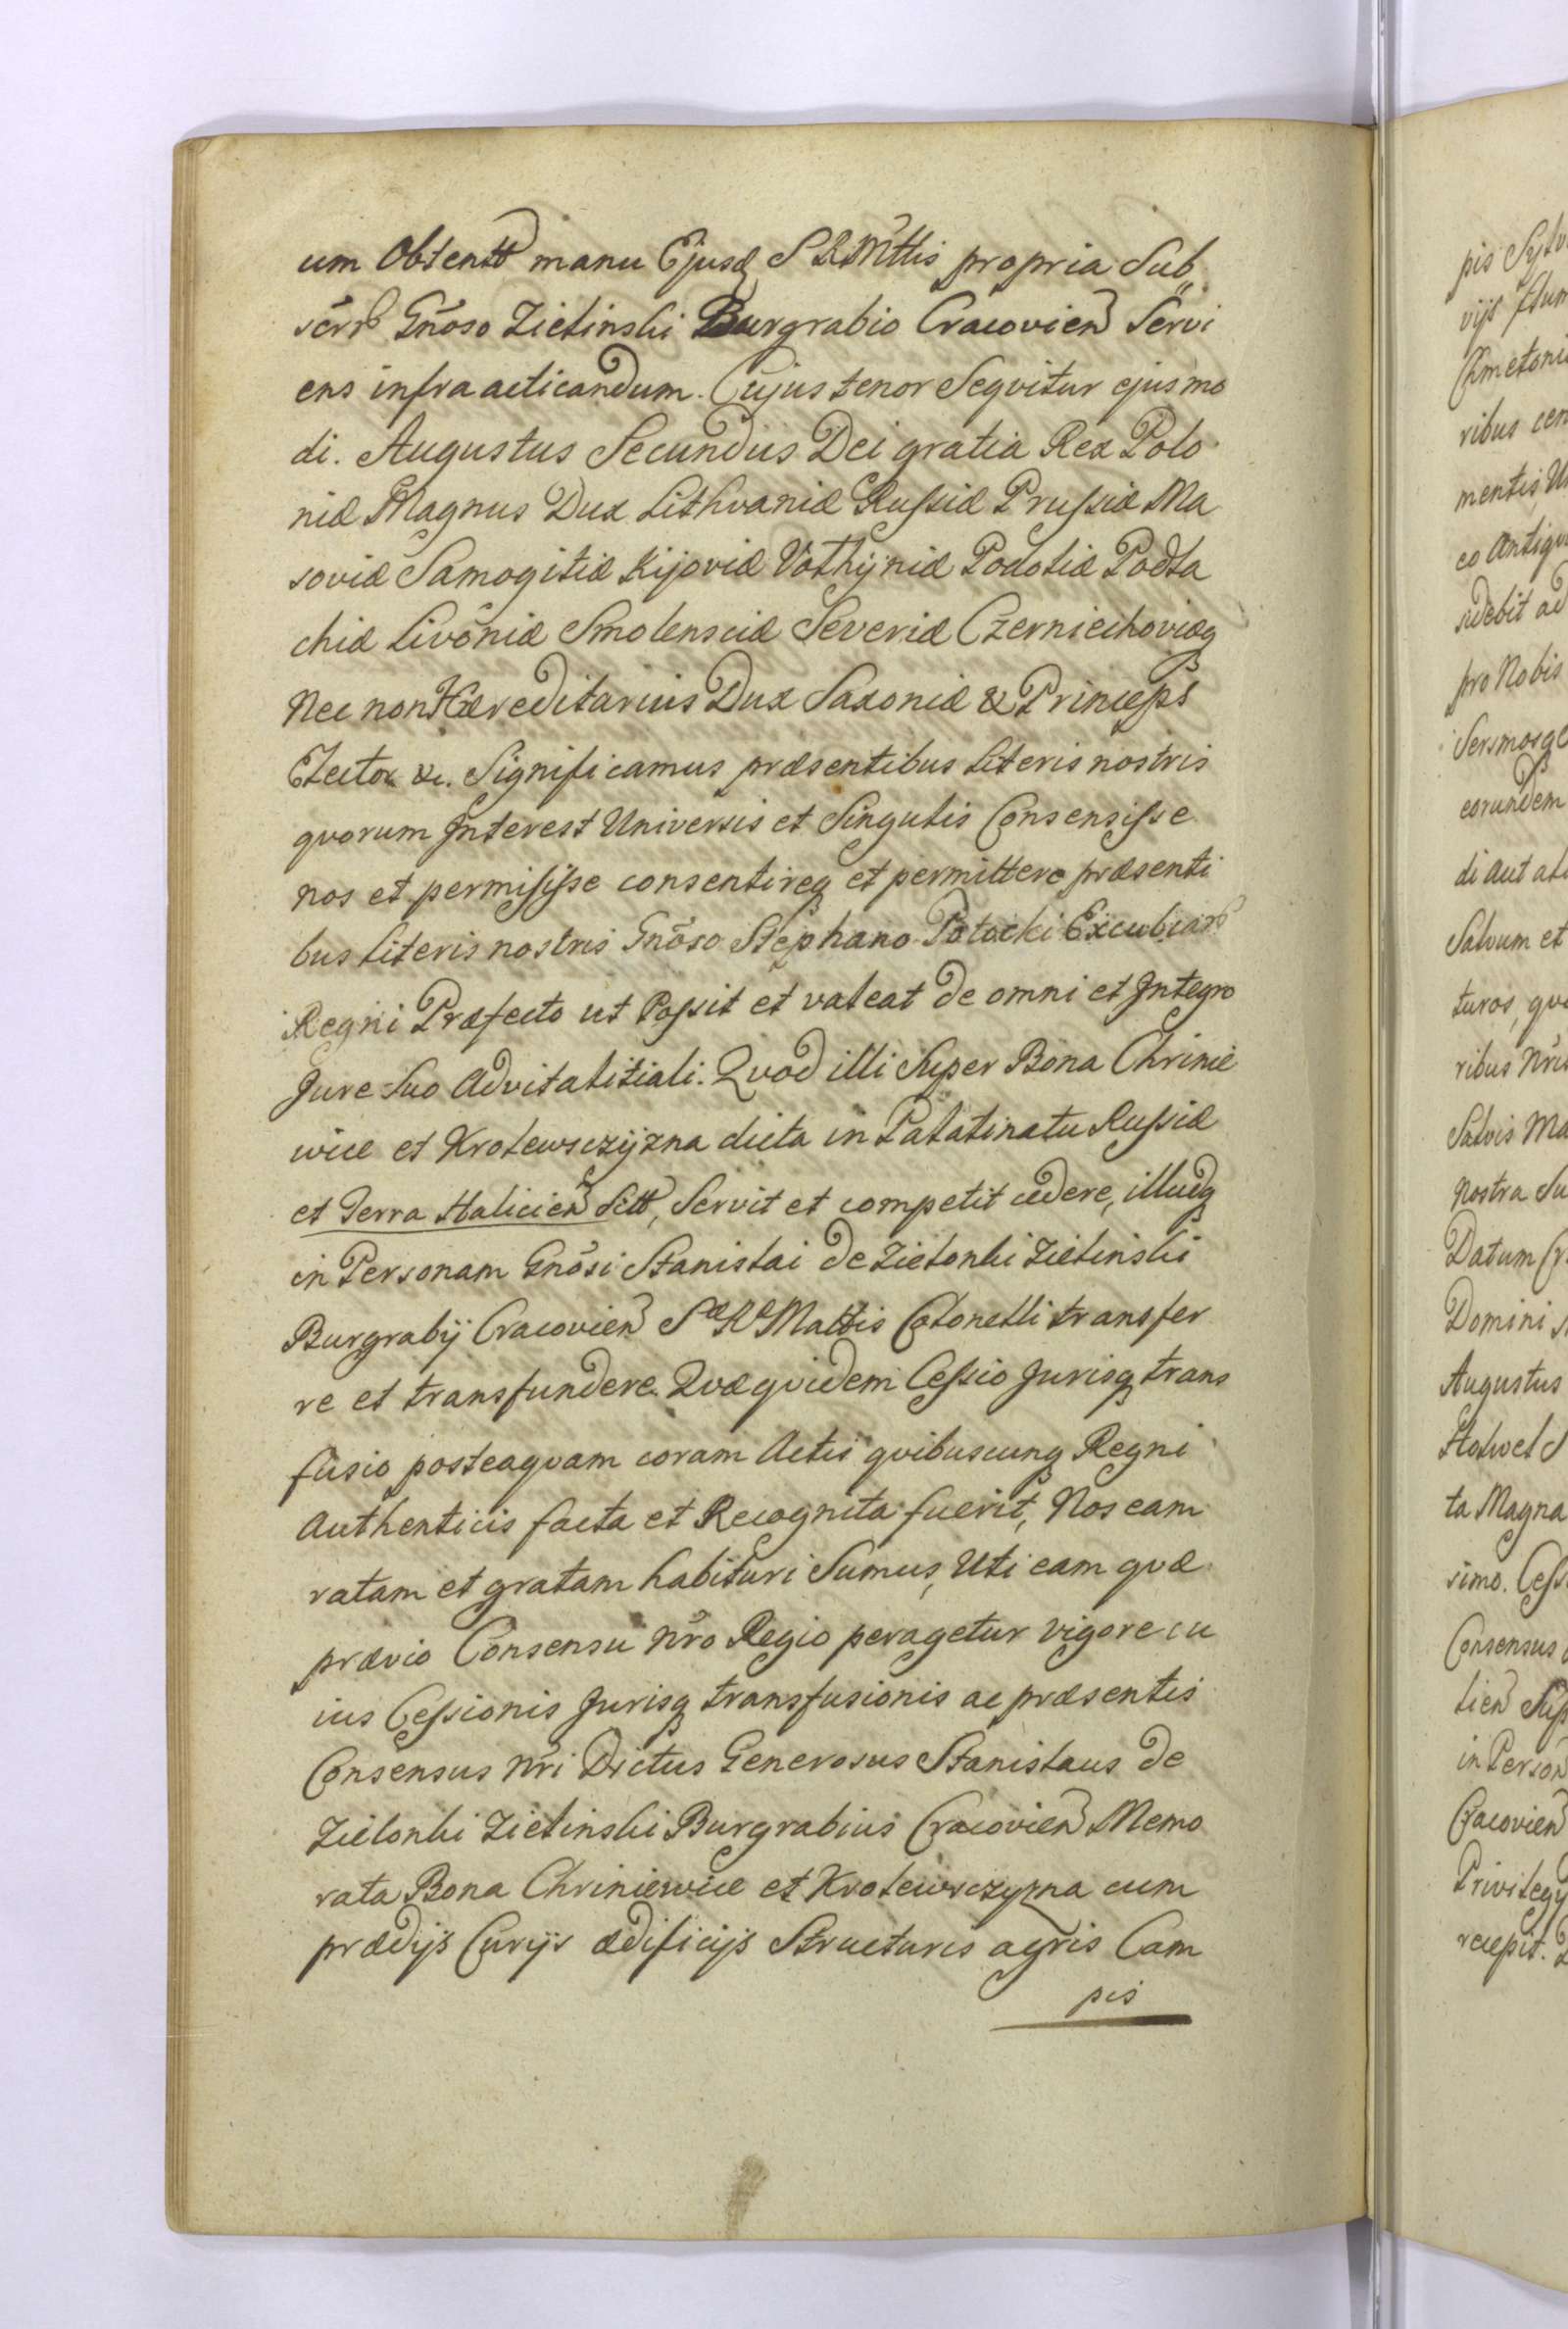 um Obtentt manu Ejusdē S R Mttis propria Sub„
scrib Gñoso Zielinski Burgrabio Cracovien Servi
ens infra acticandum. Cujus tenor Seqvitur ejusmo
di. Augustus Secundus Dei gratia Rex Polo
niæ Magnus Dux Lithvaniæ Rußiæ Prußiæ Ma
soviæ Samogitiæ Kijoviæ Vołhyniæ Podoliæ Podla
chiæ Livoniæ Smolensciæ Severiæ Czerniechoviæq
Nec non Hæreditarius Dux Saxoniæ & Princeps
Elector &c. Significamus præsentibus Literis nostris
qvorum Interest Universis et Singulis Consensiſse
nos et permisiſse consentireq et permittere præsenti
bus Literis nostris Gñoso Stephano Potocki Excubiarb
Regni Præfecto ut Poſsit et valeat de omni et Integro
Jure Suo Advitalitiali. Qvod illi Super Bona Chrinie
wice et Krolewsczyzna dicta in Palatinatu Rußiæ
et Terra Halicien Sitt, Servit et competit cedere, illudq
in Personam Gnõsi Stanislai de Zielonki Zielinski
Burgrabij Cracovien Sæ Ræ Mattis Colonelli transfer
re et transfundere. Qvæ qvidem Ceßio Jurisq trans
fusio posteaqvam coram Actis qvibuscunq Regni
Authenticis facta et Recognita fuerit, Nos eam
ratam et gratam habituri Sumus, Uti eam qvæ
prævio Consensu Nr̃o Regio peragetur vigore cu
ius Ceßionis Jurisq transfusionis ac præsentis
Consensus Nr̃i Dictus Generosus Stanislaus de
Zielonki Zielinski Burgrabius Cracovien Memo
rata Bona Chriniewice et Krolewsczyzna cum
prædijs Curijs ædificijs Structuris agris Cam
pis
pis Sylv
vijs flum
Kmetoni
ribus cen
mentis U
co Antiqv
sidebit ad
pro Nobis
Sersmosq
eorundem
di aut ali
Salvum et
turos, qv
ribus Nr̃is
Salvis Ma
Nostra Su
Datum Cr
Domini
Augustus
ta Magna
simo. Ceſs
Consensus
licien Sup
in Person
Cracovien
Privilegij
recepit.